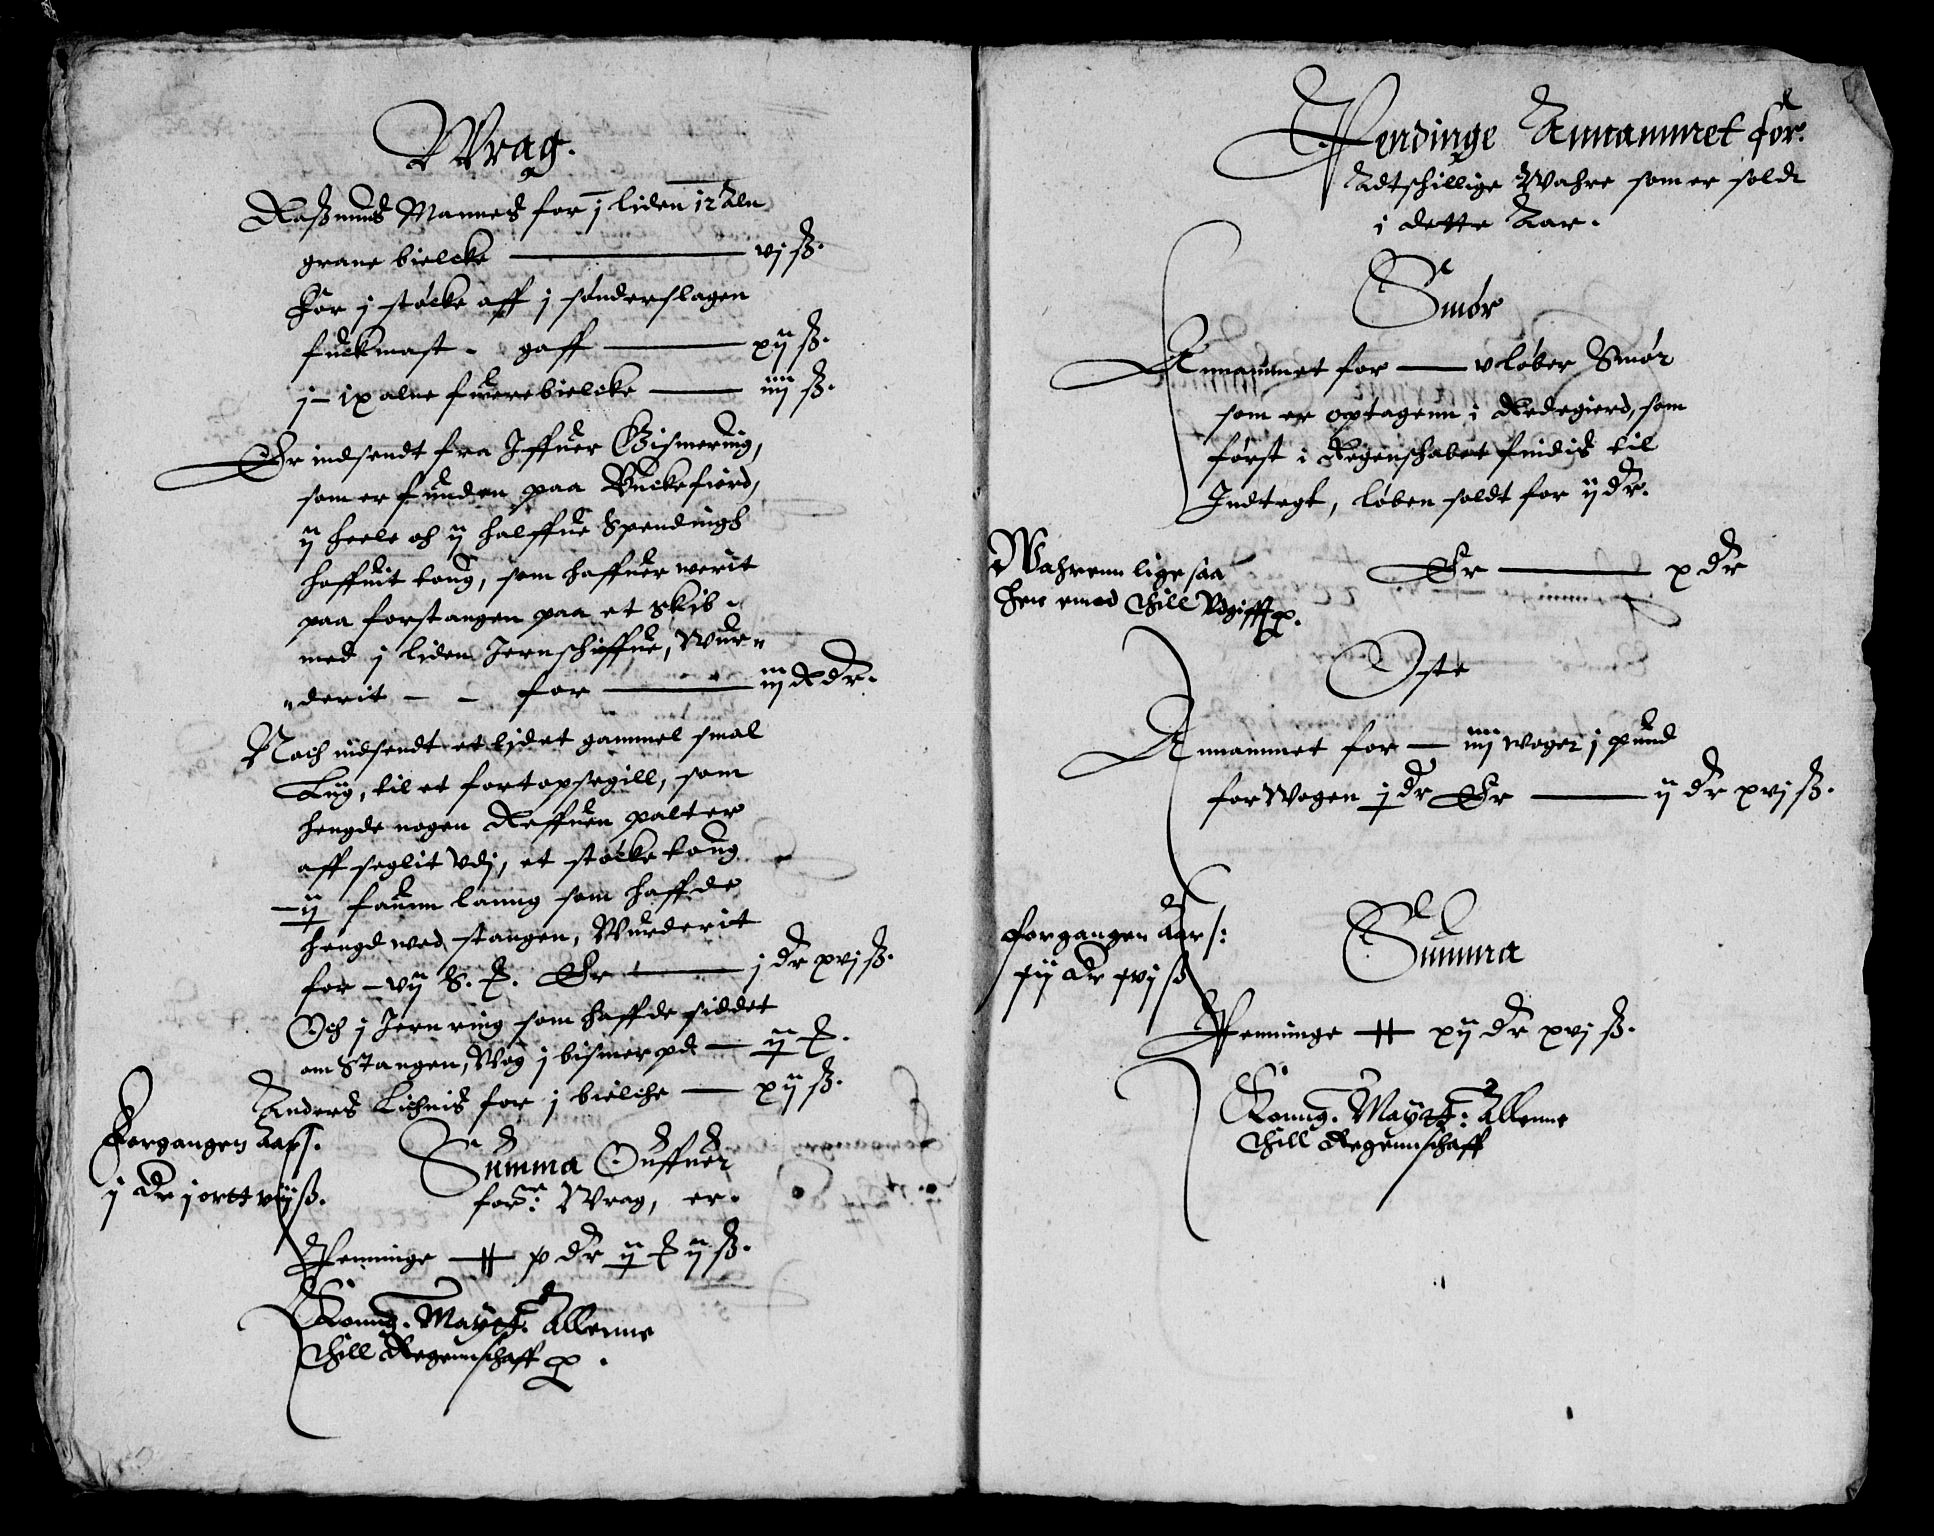 Wrag.
Rasmus Mannes for j liden 12 Aln
grane bielcke — vj ß.
For j støcke aff j sønderslagen
fuckmast - gaff — xij ß.
j — ix alne fuerebielcke — iiij ß.
Er indsendt fra Iffuer Gismering,
som er funden paa Buckefiord,
ij heele och ij halffue Spendings
hoffuit toug, som haffuer werit
paa forstangen paa et Skib -
med j liden Jernschiffue, Wur„
„derit - - for — iij Rdr.
Noch indsendt et lidet gammel smal
Liig, til et fortopsegill, som
hengde nogen Reffuen palter
aff seglit vdj, et støcke toug
— ij faunn lanng som haffde
hengd wed stangen, Wurderit
for — vij S. . Er — j dr xvj ß.
Och j Jernring som haffde siddet
om Stangen, Wog j bismer pd — ij .
Anders Lichnis for j bielche — xij ß.
Forgangen Aars.
j dr j ortt viij ß.
Summa Ouffuer
for: Wrag, er.
Penninge — x dr ij ij ß.
Konng. Mayts. Allenne
thill Regennschaff
Pendinge Annammet for
Adtschillige Wahre som er soldt
i dette Aar.
Smør
Annammet for — v løber Smør
som er optagenn i Redegierd, som
først i Regenschabet findis til
Indtegt, løben soldt for ij dr.
Er — x dr
Wahrenn lige saa
her emod thill Vdgifft.
Oste
Annammet for — iiij woger j pund
for Wogen j dr Er — ij dr xvj ß.
Forgangen Aars:
xij dr xvj ß
Summa
Penninge — xij dr xvj ß.
Konng. Mayts: Allenne
thill Regennschaff